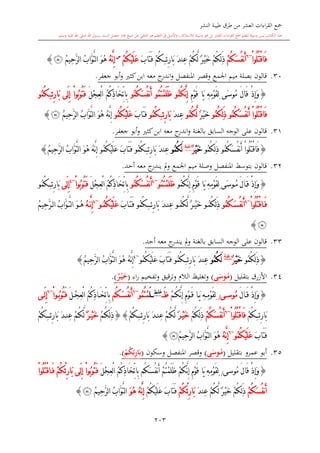 جمع القراءات العشر من طرق طيبة النشر
فَٱقْتُلُوٓا۟ أَنفُسَكُمْ ذَٰلِكُمْ خَيْرٌ لَّكُمْ عِندَ بَارِئِكُمْ فَتَابَ عَلَيْكُمْ إِنَّهُۥ هُوَ ٱلتَّوَّابُ ٱلرَّحِيمُ ﴾
٣٠. قالون بصلة ميم الجمع وقصر المنفصل واندرج معه ابن كثير وأبو جعفر.
﴿ وَإِذْ قَالَ مُوسَىٰ لِقَوْمِهِۦ يَٰقَوْمِ إِنَّكُمُۥ ظَلَمْتُمُۥٓ أَنفُسَكُمُۥ بِٱتِّخَاذِكُمُ ٱلْعِجْلَ فَتُوبُوٓا۟ إِلَىٰ بَارِئِكُمُۥ
فَٱقْتُلُوٓا۟ أَنفُسَكُمُۥ ذَٰلِكُمُۥ خَيْرٌ لَّكُمُۥ عِندَ بَارِئِكُمُۥ فَتَابَ عَلَيْكُمُۥٓ إِنَّهُۥ هُوَ ٱلتَّوَّابُ ٱلرَّحِيمُ ﴾
٣١. قالون على الوجه السابق بالغنة واندرج معه ابن كثير وأبو جعفر.
﴿ فَٱقْتُلُوٓا۟ أَنفُسَكُمُۥ ذَٰلِكُمُۥ خَيْرٌ لَّكُمُۥ عِندَ بَارِئِكُمُۥ فَتَابَ عَلَيْكُمُۥٓ إِنَّهُۥ هُوَ ٱلتَّوَّابُ ٱلرَّحِيمُ ﴾
٣٢. قالون بتوسط المنفصل وصلة ميم الجمع ولم يندرج معه أحد.
﴿ وَإِذْ قَالَ مُوسَىٰ لِقَوْمِهِۦ يَٰقَوْمِ إِنَّكُمُۥ ظَلَمْتُمُۥٓ أَنفُسَكُمُۥ بِٱتِّخَاذِكُمُ ٱلْعِجْلَ فَتُوبُوٓا۟ إِلَىٰ بَارِئِكُمُۥ
فَٱقْتُلُوٓا۟ أَنفُسَكُمُۥ ذَٰلِكُمُۥ خَيْرٌ لَّكُمُۥ عِندَ بَارِئِكُمُۥ فَتَابَ عَلَيْكُمُۥٓ إِنَّهُۥ هُوَ ٱلتَّوَّابُ ٱلرَّحِيمُ
﴾
٣٣. قالون على الوجه السابق بالغنة ولم يندرج معه أحد.
﴿ ذَٰلِكُمُۥ خَيْرٌ لَّكُمُۥ عِندَ بَارِئِكُمُۥ فَتَابَ عَلَيْكُمُۥٓ إِنَّهُۥ هُوَ ٱلتَّوَّابُ ٱلرَّحِيمُ ﴾
٣٤. الأزرق بتقليل (مُوسَىٰ) وتغليظ اللام وترقيق وتفخيم راء (خَيْرٌ).
﴿ وَإِذْ قَالَ مُوسَىٰ لِقَوْمِهِۦ يَٰقَوْمِ إِنَّكُمْ ظَلَمْتُمُۥٓ أَنفُسَكُمْ بِٱتِّخَاذِكُمُ ٱلْعِجْلَ فَتُوبُوٓا۟ إِلَىٰ
بَارِئِكُمْ فَٱقْتُلُوٓا۟ أَنفُسَكُمْ ذَٰلِكُمْ خَيْرٌ لَّكُمْ عِندَ بَارِئِكُمْ ﴾ ﴿ ذَٰلِكُمْ خَيْرٌ لَّكُمْ عِندَ بَارِئِكُمْ
فَتَابَ عَلَيْكُمُۥٓ إِنَّهُۥ هُوَ ٱلتَّوَّابُ ٱلرَّحِيمُ ﴾
٣٥. أبو عمرو بتقليل (مُوسَىٰ) وقصر المنفصل وسكون (بَارِئْكُمْ).
﴿ وَإِذْ قَالَ مُوسَىٰ لِقَوْمِهِۦ يَٰقَوْمِ إِنَّكُمْ ظَلَمْتُمْ أَنفُسَكُم بِٱتِّخَاذِكُمُ ٱلْعِجْلَ فَتُوبُوٓا۟ إِلَىٰ بَارِئْكُمْ فَٱقْتُلُوٓا۟
أَنفُسَكُمْ ذَٰلِكُمْ خَيْرٌ لَّكُمْ عِندَ بَارِئْكُمْ فَتَابَ عَلَيْكُمْ إِنَّهُۥ هُوَ ٱلتَّوَّابُ ٱلرَّحِيمُ ﴾
٢٠٣